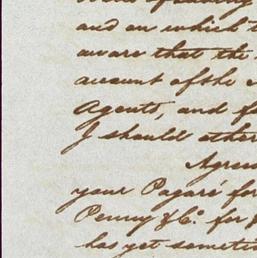 and on which
aware that the
account of the
Agents, and
I should other
Agree
your Pagaré for
Penny & Co. for
has yet someti